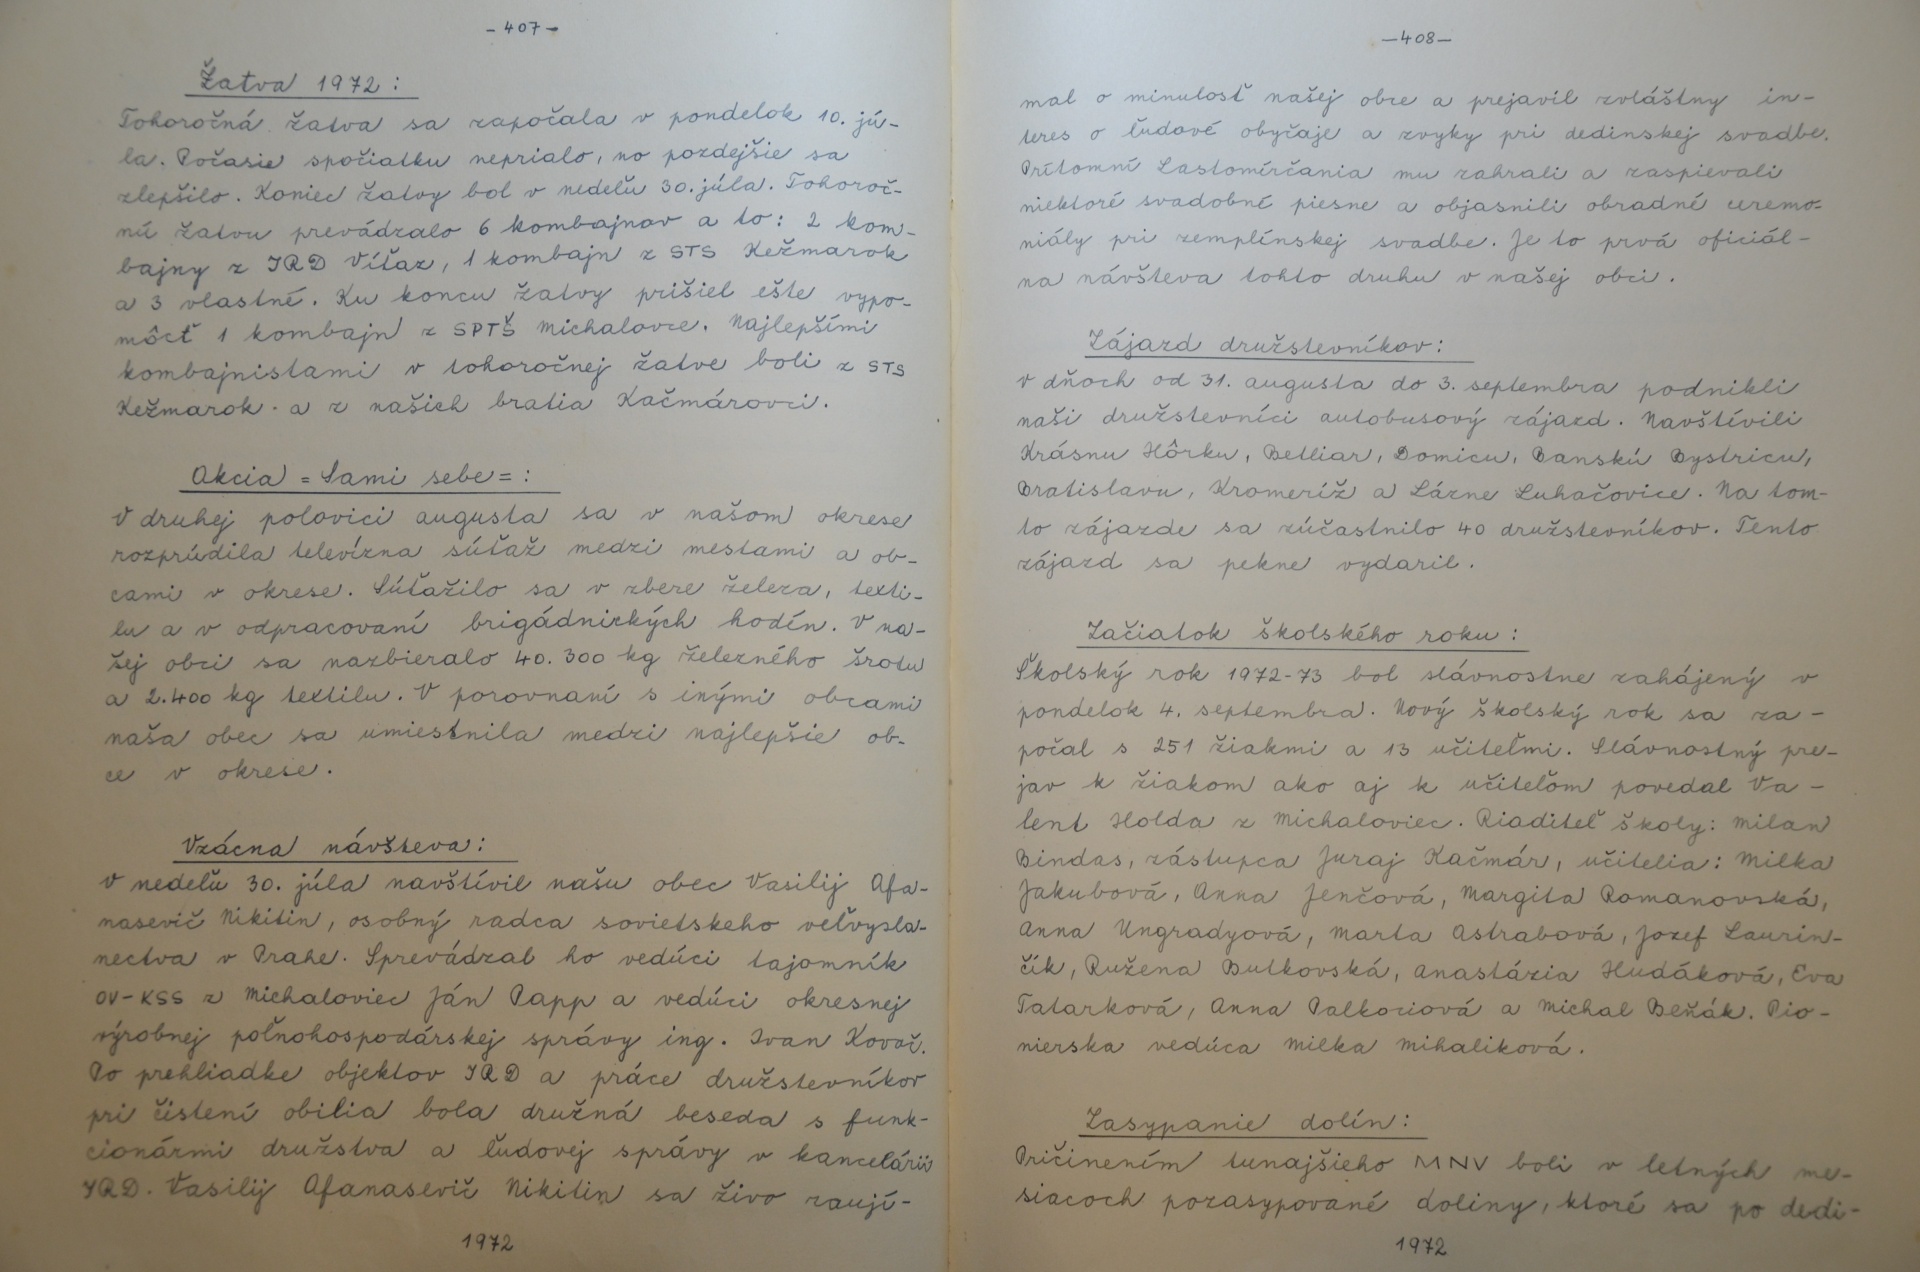 - 407 -
Žatva 1972 :
Tohoročná žatva sa započala v pondelok 10. jú-
la. Počasie spočiatku neprialo, no pozdejšie sa
zlepšilo. Koniec žatvy bol v nedeľu 30. júla. Tohoroč-
nú žatvu prevádzalo 6 kombajnov a to : 2 kom-
bajny z JRD Víťaz, 1 kombajn z STS Kežmarok
a 3 vlastné. Ku koncu žatvy prišiel ešte vypo-
môcť 1 kombajn z SPTŠ Michalovce. Najlepšími
kombajnistami v tohoročnej žatve boli z STS
Kežmarok a z našich bratia Kačmárovci.
Akcia = Sami sebe = :
V druhej polovici augusta sa v našom okrese
rozprúdila televízna súťaž medzi mestami a ob-
cami v okrese. Súťažilo sa v zbere železa, texti-
lu a v odpracovaní brigádnických hodín. V na-
šej obci sa nazbieralo 40.300 kg železného šrotu
a 2.400 kg textilu. V porovnaní s inými obcami
naša obec sa umiestnila medzi najlepšie ob-
ce v okrese.
Vzácna návšteva :
V nedeľu 30. júla navštívil našu obec Vasilij Afa-
nasevič Nikitin, osobný radca sovietskeho veľvysla-
nectva v Prahe. Sprevádzal ho vedúci tajomník
OV-KSS z Michaloviec Ján Papp a vedúci okresnej
výrobnej poľnohospodárskej správy ing. Ivan Kovač.
Po prehliadke objektov JRD a práce družstevníkov
pri čistení obilia bola družná beseda s funk-
cionármi družstva a ľudovej správy v kancelárii
JRD. Vasilij Afanasevič Nikitin sa živo zaují-
1972
- 408 -
mal o minulosť našej obce a prejavil zvláštny in-
teres o ľudové obyčaje a zvyky pri dedinskej svadbe.
Prítomní Lastomírčania mu zahrali a zaspievali
niektoré svadobné piesne a objasnili obradné ceremo-
niály pri zemplínskej svadbe. Je to prvá oficiál-
na návšteva tohto druhu v našej obci.
Zájazd družstevníkov :
V dňoch od 31. augusta do 3. septembra podnikli
naši družstevníci autobusový zájazd. Navštívili
Krásnu Hôrku, Betliar, Domicu, Banskú Bystricu,
Bratislavu, Kromeríž a Lázne Luhačovice. Na tom-
to zájazde sa zúčastnilo 40 družstevníkov. Tento
zájazd sa pekne vydaril.
Začiatok školského roku :
Školský rok 1972-73 bol slávnostne zahájený v
pondelok 4. septembra. Nový školský rok sa za-
počal s 251 žiakmi a 13 učiteľmi. Slávnostný pre-
jav k žiakom ako aj k učiteľom povedal Va-
lent Holda z Michaloviec. Riaditeľ školy : Milan
Bindas, zástupca Juraj Kačmár, učitelia : Milka
Jakubová, Anna Jenčová, Margita Romanovská,
Anna Ungradyová, Marta Astrabová, Jozef Laurin-
čík, Ružena Butkovská, Anastázia Hudáková, Eva
Tatarková, Anna Palkociová a Michal Bežák. Pio-
nierska vedúca Milka Mihaliková.
Zasypanie dolín :
Pričinením tunajšieho MNV boli v letných me-
siacoch pozasypované doliny, ktoré sa po dedi-
1972